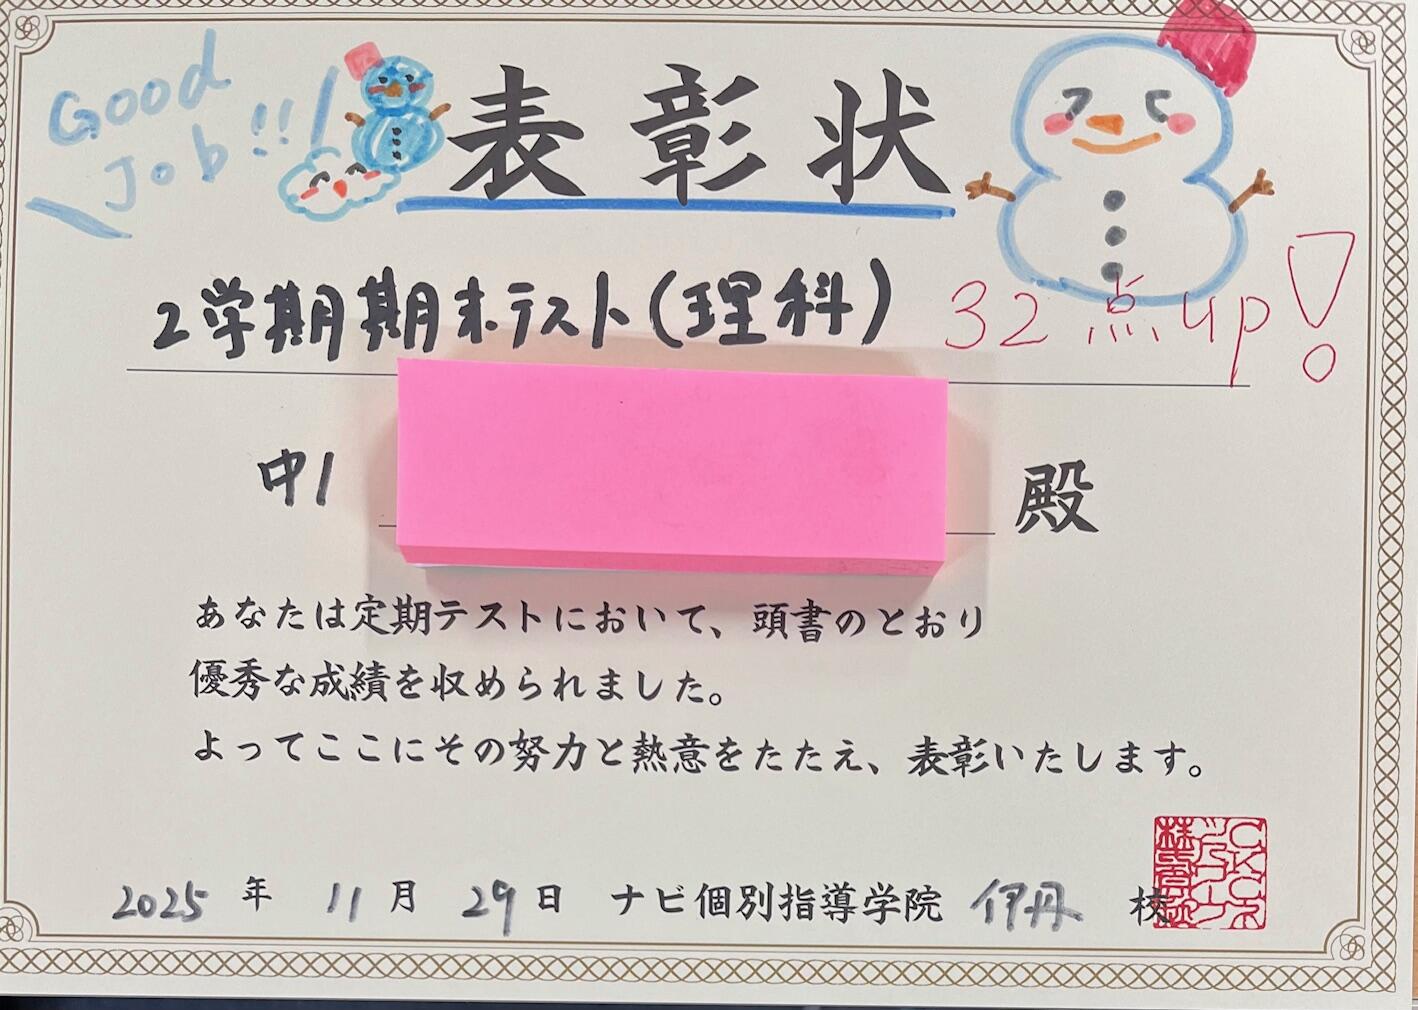 Good
Job!!
表彰状
2学期期末テスト(理科) 32点up!
中1 殿
あなたは定期テストにおいて、頭書のとおり
優秀な成績を収められました。
よってここにその努力と熱意をたたえ、表彰いたします。
2025年 11月 29日 ナビ個別指導学院 伊丹 校